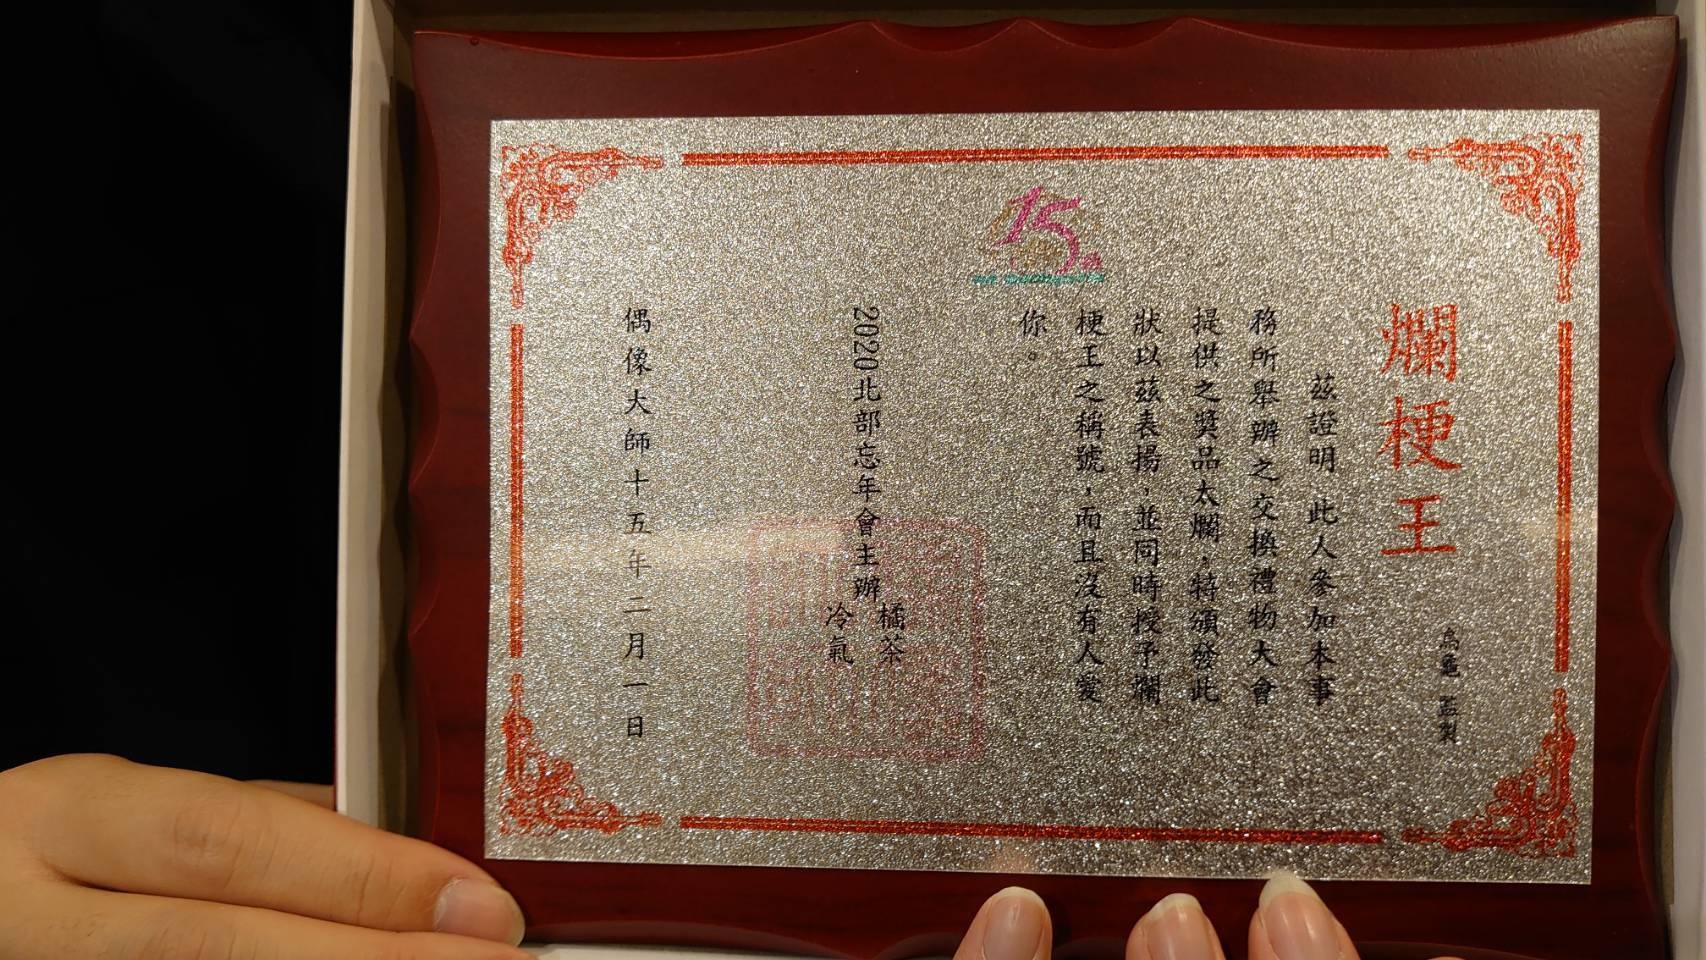 爛梗王
烏龜 監製
茲證明，此人參加本事
務所舉辦之交換禮物大會
提供之獎品太爛，特頒發此
狀以茲表揚，並同時授予爛
梗王之稱號，而且沒有人愛
你。
15
2020北部忘年會主辦
橘茶
冷氣
偶像大師十五年二月一日